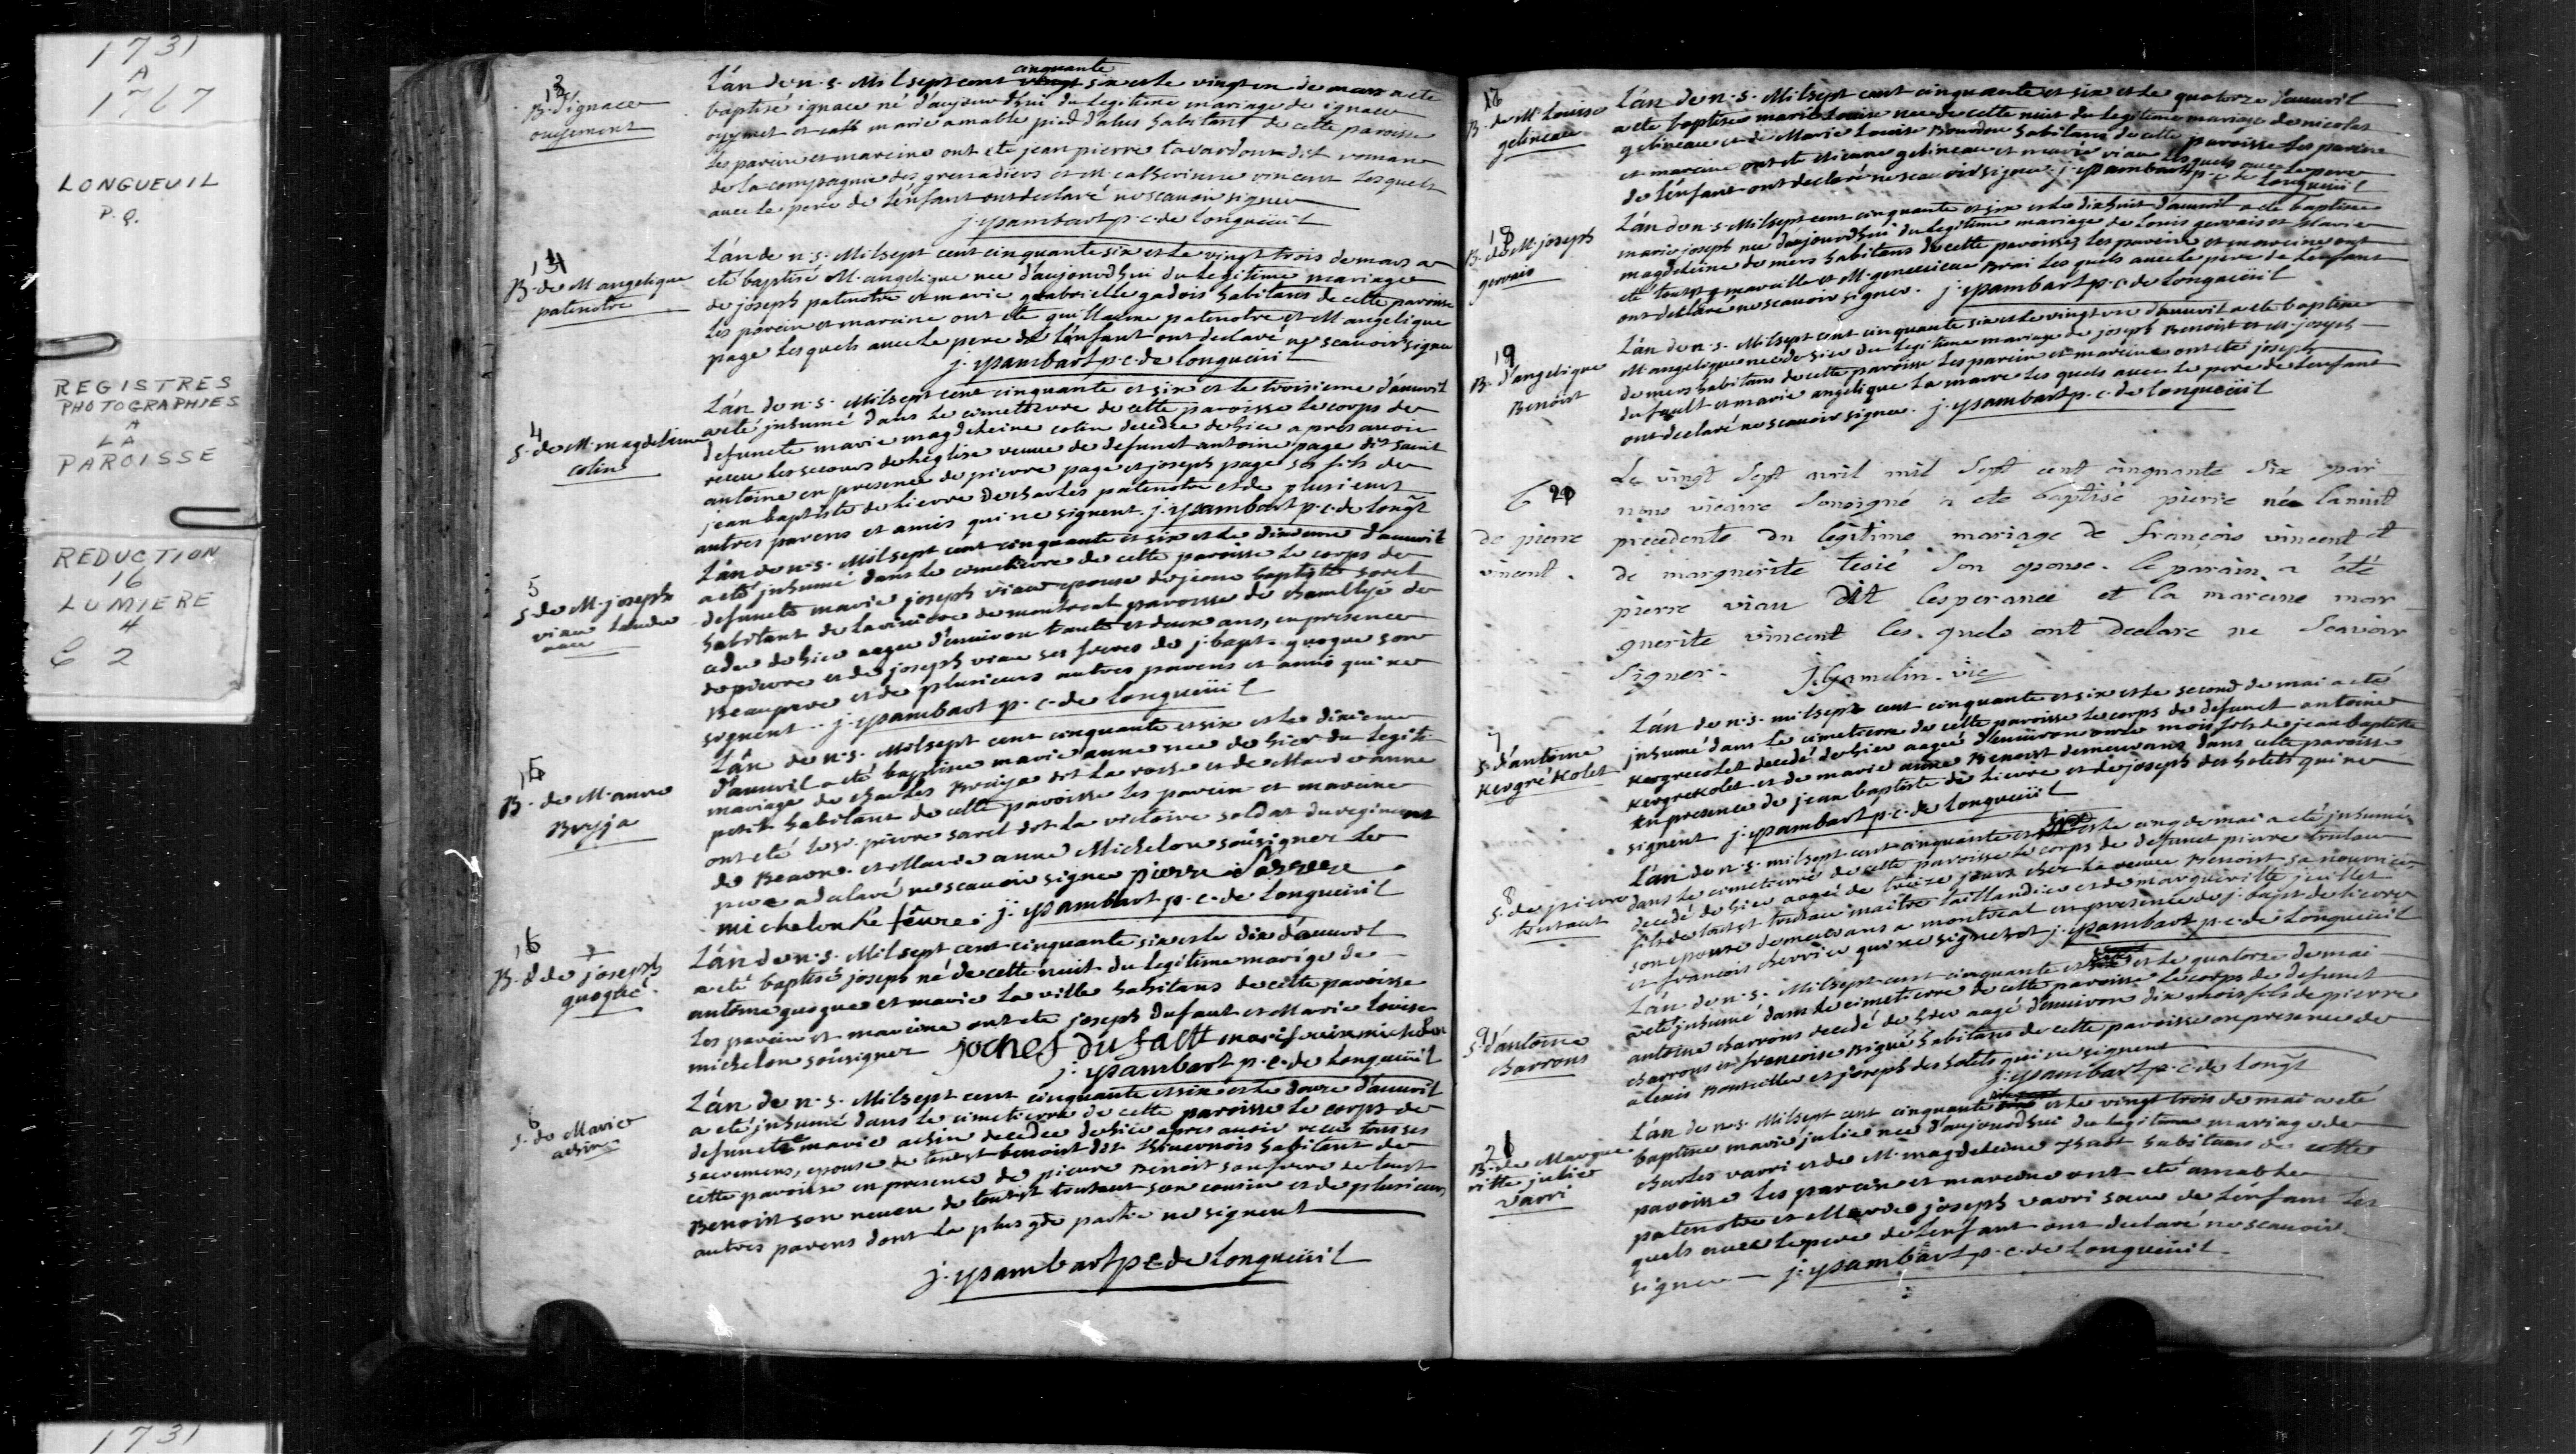 1731
A
1767
LONGUEUIL
P.Q.
REGISTRES
PHOTOGRAPHIES
A
LA
PAROISSE
REDUCTION
16
LUMIERE
4
C 2
1731
13
B. d'ignace
ouyement
L'án de n. s. Mil sept cent vingt cinquante six et le vingt un de mars a ete
baptisé ignace né d'aujourdhui du legitime mariage de ignace
et cath marie amable pied d'alus habitans de cette paroisse
Les parein et mareine ont eté jean pierre lavardout dit roman
de la compagnie des grenadiers et M. catherinne vincent Lesquels
avec le pere de l'enfant ont declaré ne scavoir signer
j. ysambart p. c. de Longueüil
14
B. de M angelique
patenotre
L'án de n. s. Mil sept cent cinquante six et le vingt trois de mars a
eté baptisé M. angelique nee d'aujourdhui du legitime mariage
de joseph patenotre et marie gabrielle gadois habitans de cette paroisse
les parein et mareine ont ete guillaume patenotre et M angelique
page lesquels avec le pere de l'enfant ont declaré ne scavoir signer
j. ysambart p. c. de Longueüil
4
S. de M. magdeleine
colin
L'án de n. s. Mil sept cent cinquante et six et le troisieme d'auvril
a eté jnhumé dans le cimetierre de cette paroisse le corps de
defuncte marie magdeleine colin decedee de hier apres avoir
receu les secours de l'eglise veuve de defunct antoine page dit saint
antoine en presence de pierre page et joseph page ses fils de
jean baptiste de lievre de charles patenotre et de plusieurs
autres parens et amis qui ne signent. j. ysambart p. c. de Longt
5
S. de M. joseph
viau
L'án de n. s. Mil sept cent cinquante et six et le dixieme d'auvril
a eté jnhumé dans le cimetierre de cette paroisse le corps de
defuncte marie joseph viau epouse de jean baptiste soret
habitant de la riviere de montreal paroisse de chamblÿ de
cedee de hier agee d'environ trante et deux ans, en presence
de pierre et de joseph viau ses freres de j. bapt. quoque son
Beaupere et de plusieurs autres parens et amis qui ne
signent. j. ysambart p. c. de Longueüil
15
B. de M. anne
Bryja
L'án de n. s. Mil sept cent cinquante et six et le dixieme
d'auvril a eté baptisee marie anne nee de hier du legiti-
mariage de charles Bruja dit La rose et de Marie anne
petit habitans de cette paroisse les parein et mareine
ont eté le sr. pierre saret dit la victoire soldat du regiment
de Bearne. et Marie anne Michelon soûsigner le
pere a declaré ne scavoir signer pierre
michelon Le fêure. j. ysambart p. c. de Longueüil
16
B. d de joseph
quoque
L'án de n. s. Mil sept cent cinquante six et le dix d'auvril
a eté baptisé joseph né de cette nuit du legitime mariage de
antoine quoque et marie la ville habitans de cette paroisse
Les parein et mareine ont ete joseph dufaut et Marie louise
michelon soûsigner joches du faut marie louise michelon
j. ysambart p. c. de Longueüil
6
s. de Marie
achin
L'án de n. s. Mil sept cent cinquante et six et le douze d'auvril
a eté jnhumé dans le cimetierre de cette paroisse le corps de
defuncte marie achin decedee de hier apres avoir receu tous ses
sacremens, epouse de toust benoist dit Livernois habitant de
cette paroisse en presence de pierre Benoit son frere de toust
Benoist son neveu de toust trutaut son cousin et de plusieurs
autres parens dont la plus gde partie ne signent
j. ysambart p c de Longueüil
17
B. de M Louise
gelineau
L'án de n. s. Mil sept cent cinquante et six et le quatorze d'auvril
a ete baptisee marie Louise nee de cette nuit du legitime mariage de nicolas
gelineau et de Marie Louise Bourdon habitans de cette paroisse les parein
et mareine ont ete etienne gelineau et marie viau lesquels avec le pere
de l'enfant ont declaré ne scavoir signer. j. ysambart p. c. de Longueüil
18
B. de M. joseph
gervais
L'án de n. s. Mil sept cent cinquante et six et le dix huit d'auvril a ete baptisee
marie joseph nee d'aujourdhui du legitime mariage de Louis gervais et Marie
magdeleine de mers habitans de cette paroisse, les parein et mareine ont
eté toust marcille et M. genevieve Brai les quels avec le pere de l'enfant
ont declaré ne scavoir signer. j. ysambart p. c. de Longueüil
19
B. d'angelique
Benoist
L'án de n. s. Mil sept cent cinquante six et le vingt un d'auvril a ete baptisee
M. angelique nee de hier du legitime mariage de joseph Benoist et M. joseph
de mers habitans de cette paroisse les parein et mareine ont ete joseph
du fault et marie angelique La marre les quels avec le pere de l'enfant
ont declaré ne scavoir signer. j. ysambart p. c. de Longueüil
B 20
de pierre
vincent.
Le vingt sept avril mil sept cent cinquante six par
nous vicaire sousigné a ete baptisé pierre né la nuit
precedente du legitime mariage de françois vincent et
de marguerite tesié son epouse. le parain a été
pierre viau dit lesperance et la maraine mar
guerite vincent les. quels ont declare ne scavoir
signer. J. Gamelin. vic
7
S. d'antoine
Kergrékolet
L'án de n. s. mil sept cent cinquante et six et le second de mai a eté
jnhumé dans le cimetierre de cette paroisse le corps de defunct antoine
Kergrecolet decedé de hier aagé d'environ onze mois fils de jean baptiste
Kergrekolet et de marie anne Benoist demeurans dans cette paroisse
en presence de jean baptiste de lievre et de joseph des hotels qui ne
signent j. ysambart p. c. de Longueüil
8
S. de pierre
trutaut
L'án de n. s. mil sept cent cinquante et six et le cinq de mai a eté jnhumé
dans le cimetierre de cette paroisse le corps de defunct pierre trutau
decedé de hier aagé de treize jours chez la veuve Benoist sa nourrice
fils de toust trutau maitre taillandier et de marguerite juillet
son epouse demeurans a montreal en presence de j. bapt de lievre
et francois cherrier qui ne signent j. ysambart p. c. de Longueüil
9
S. d'antoine
charrons
L'án de n. s. Mil sept cent cinquante et six et le quatorze de mai
a eté jnhumé dans le cimetierre de cette paroisse le corps de defunct
antoine charrons decedé de hier aagé d'environ dix mois fils de pierre
charrons et francoise Bigué habitans de cette paroisse en presence de
alexis Bouteille et joseph des hotels qui ne signent
j. ysambart p. c. de Longt
21
B. de Margue
ritte julie
varri
L'án de n. s. Mil sept cent cinquante six et le vingt trois de mai a eté
baptisee marie julie nee d'aujourdhui du legitime mariage de
charles varri et de M. magdeleine habitans de cette
paroisse les parein et mareine ont eté amable
patenotre et Marie joseph varri soeur de l'enfant les
quels avec le pere de l'enfant ont declaré ne scavoir
signer j. ysambart p. c. de Longueüil